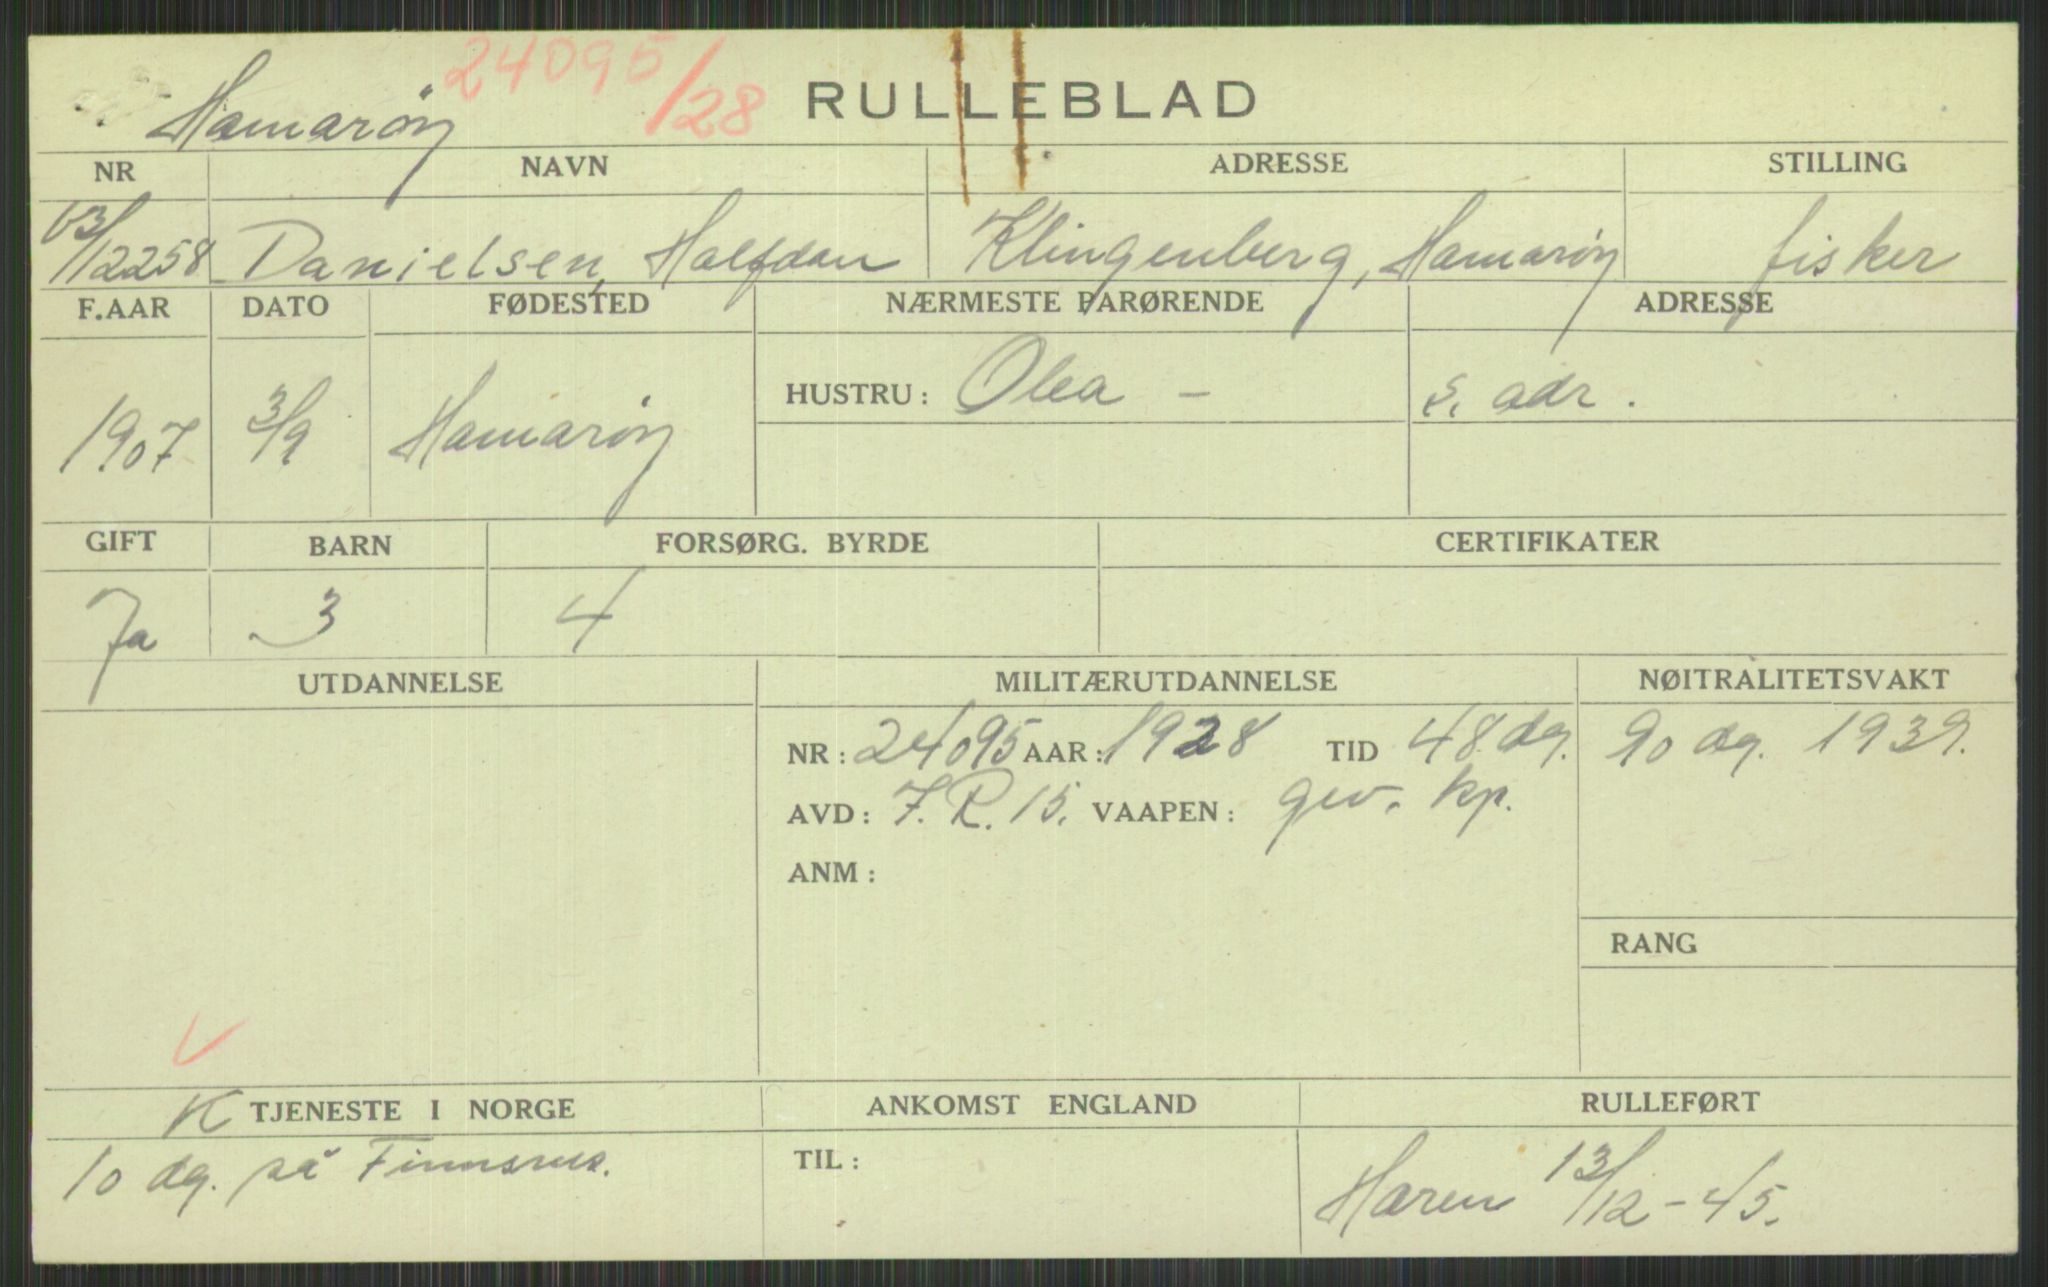 Hamarøy 24095/28 RULLEBLAD
NR NAVN ADRESSE STILLING
03/12258 Danielsen, Halfdan Klingenberg, Hamarøy fisker
F.AAR DATO FØDESTED NÆRMESTE PARØRENDE ADRESSE
1907 3/9 Hamarøy HUSTRU: Olea - s. adr.
GIFT BARN FORSØRG. BYRDE CERTIFIKATER
Ja 3 4
UTDANNELSE MILITÆRUTDANNELSE NØITRALITETSVAKT
NR: 24095 AAR: 1928 TID 48 dg. 90 dg. 1939.
AVD: I.R. 15. VAAPEN: gev. kp.
ANM:
RANG
K TJENESTE I NORGE ANKOMST ENGLAND RULLEFØRT
10 dg. på Finnsnes. TIL: Haren 13/12-45.